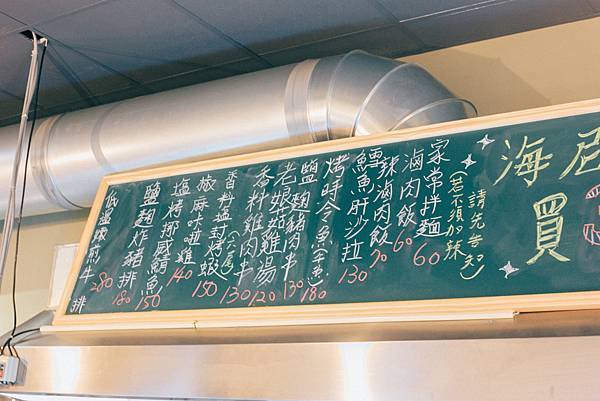 海
買
請先告知
(若不須加辣
家常拌麵 60
滷肉飯 60
辣滷肉飯 70
鱈魚肝沙拉 130
烤呼冷魚(六毛) 180
鹽麴豬肉半 130
老娘菇雞湯 120
香料雞肉半 130
香料塩封烤蝦(六尾) 150
椒麻咔啦雞 140
塩烤挪威鯖魚 150
鹽麴炸豬排 180
低溫嫩煎牛排 280